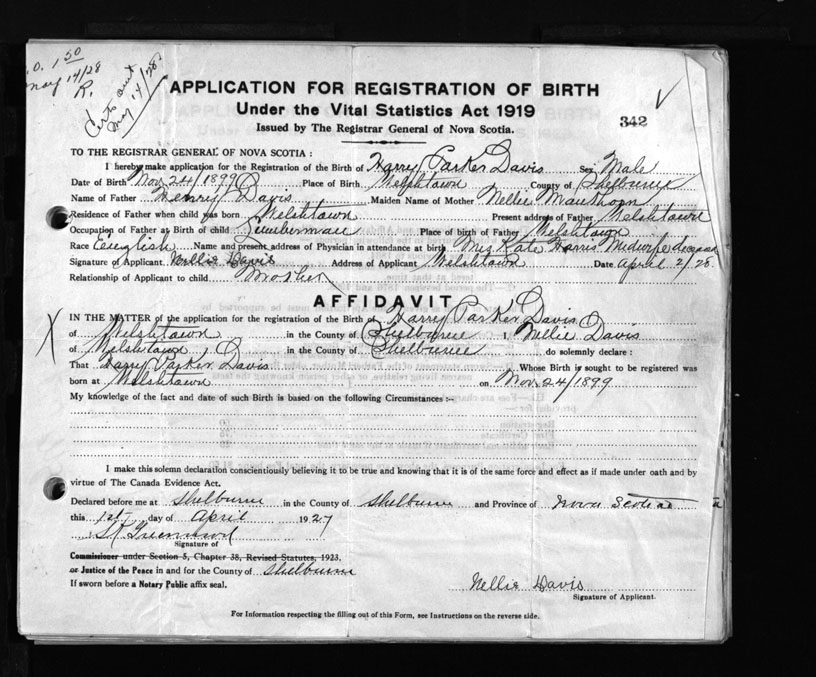 O. 1 50
May 14/28
R.
Certs sent
May 14/28
APPLICATION FOR REGISTRATION OF BIRTH
Under the Vital Statistics Act 1919
Issued by The Registrar General of Nova Scotia.
342
TO THE REGISTRAR GENERAL OF NOVA SCOTIA :
I hereby make application for the Registration of the Birth of Harry Parker Davis Sex Male
Date of Birth Nov 24/1899 Place of Birth Welshtown County of Shelburne
Name of Father Henry Davis Maiden Name of Mother Nellie
Residence of Father when child was born Welshtown Present address of Father Welshtown
Occupation of Father at Birth of child Lumberman Place of birth of Father Welshtown
Race English Name and present address of Physician in attendance at birth Mrs Kate Harris Midwife deceased
Signature of Applicant Nellie Davis Address of Applicant Welshtown Date April 2/28
Relationship of Applicant to child Mother
AFFIDAVIT
IN THE MATTER of the application for the registration of the Birth of Harry Parker Davis
of Welshtown in the County of Shelburne I, Nellie Davis
of Welshtown in the County of Shelburne do solemnly declare :
That Harry Parker Davis Whose Birth is sought to be registered was
born at Welshtown on Nov 24/1899
My knowledge of the fact and date of such Birth is based on the following Circumstances :-
I make this solemn declaration conscientiously believing it to be true and knowing that it is of the same force and effect as if made under oath and by
virtue of The Canada Evidence Act.
Declared before me at Shelburne in the County of Shelburne and Province of Nova Scotia
this 1st day of April 1927
Signature of
Commissioner under Section 5, Chapter 38, Revised Statutes, 1923,
or Justice of the Peace in and for the County of Shelburne
If sworn before a Notary Public affix seal.
Nellie Davis
Signature of Applicant.
For Information respecting the filling out of this Form, see Instructions on the reverse side.